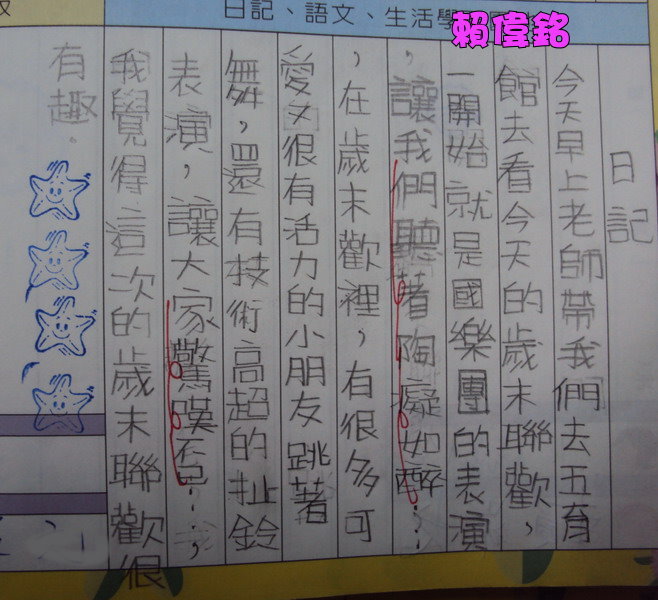 日記、語文、生活學
賴偉銘
日記
今天早上老師帶我們去五育
館去看今天的歲末聯歡，
一開始就是國樂團的表演
，讓我們聽著陶癡如醉…
，在歲末歡裡，有很多可
愛又很有活力的小朋友跳著
舞，還有技術高超的扯鈴
表演，讓大家驚嘆不已…，
我覺得這次的歲末聯歡很
有趣。